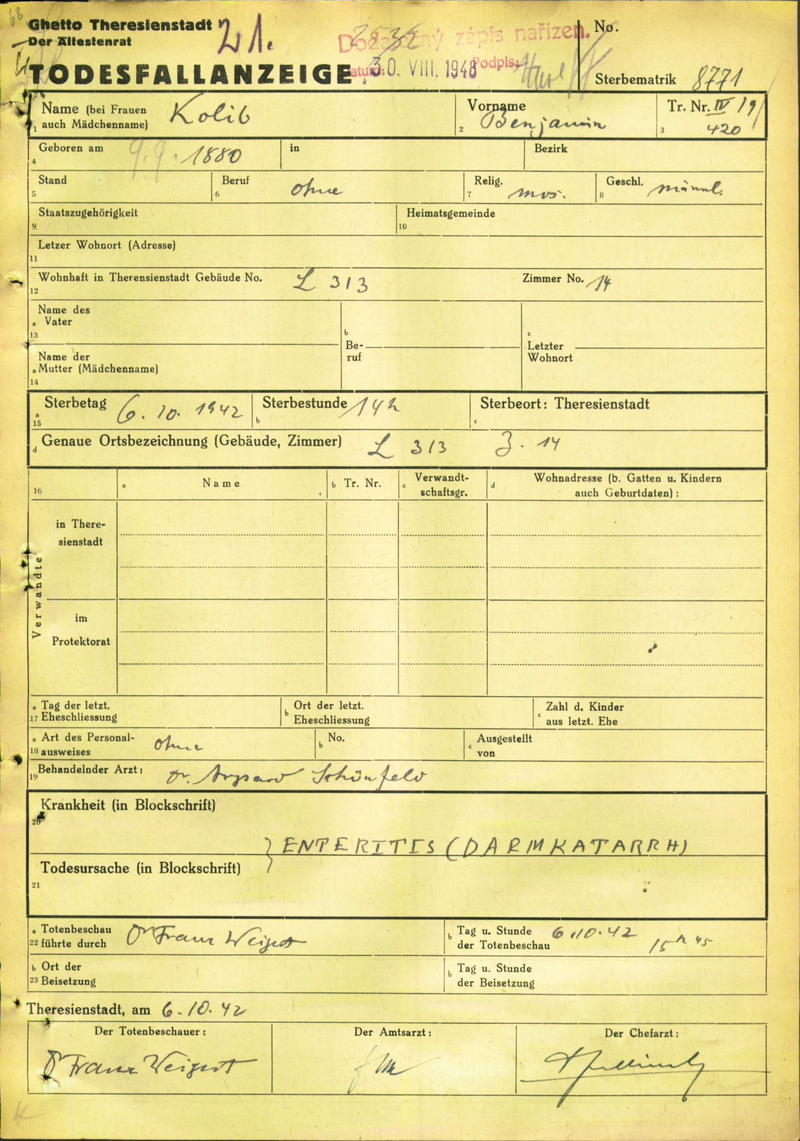 Ghetto Theresienstadt
Der Ältestenrat
21.
Dodatečný zápis nařízen.
No.
TODESFALLANZEIGE
30. VIII. 1948
Podpis:
Sterbematrik 8771
Name (bei Frauen
1 auch Mädchenname)
Kolib
Vorname
2 Benjamin
Tr. Nr. IV/9
3 420
Geboren am 9.9.1880
4
in
Bezirk
Stand
5
Beruf ohne
6
Relig. mos.
7
Geschl. männl.
8
Staatszugehörigkeit
9.
Heimatsgemeinde
10
Letzer Wohnort (Adresse)
11
Wohnhaft in Therensienstadt Gebäude No. L 313
12
Zimmer No. 14
Name des
a Vater
13
b
Be-
ruf
c
Letzter
Wohnort
Name der
a Mutter (Mädchenname)
14
Sterbetag 6. 10. 1942
a
15
Sterbestunde 14 h
b
Sterbeort: Theresienstadt
c
d Genaue Ortsbezeichnung (Gebäude, Zimmer) L 313 Z. 14
16
a Name
b Tr. Nr.
c Verwandt-
schaftsgr.
d Wohnadresse (b. Gatten u. Kindern
auch Geburtdaten) :
Verwandte
in There-
sienstadt
im
Protektorat
a Tag der letzt.
17 Eheschliessung
b Ort der letzt.
Eheschliessung
c Zahl d. Kinder
aus letzt. Ehe
a Art des Personal-
18 ausweises
ohne
b No.
c Ausgestellt
von
Behandelnder Arzt: Dr. Arpard Schönfeld
19
Krankheit (in Blockschrift)
20
ENTERITIS (DARMKATARRH)
Todesursache (in Blockschrift)
21
a Totenbeschau
22 führte durch
Dr Franz Weigert
b Tag u. Stunde
der Totenbeschau
6.10.42
15h 45
b Ort der
23 Beisetzung
b Tag u. Stunde
der Beisetzung
Theresienstadt, am 6.10.42
Der Totenbeschauer:
Der Amtsarzt:
Der Chefarzt:
Dr Franz Weigert